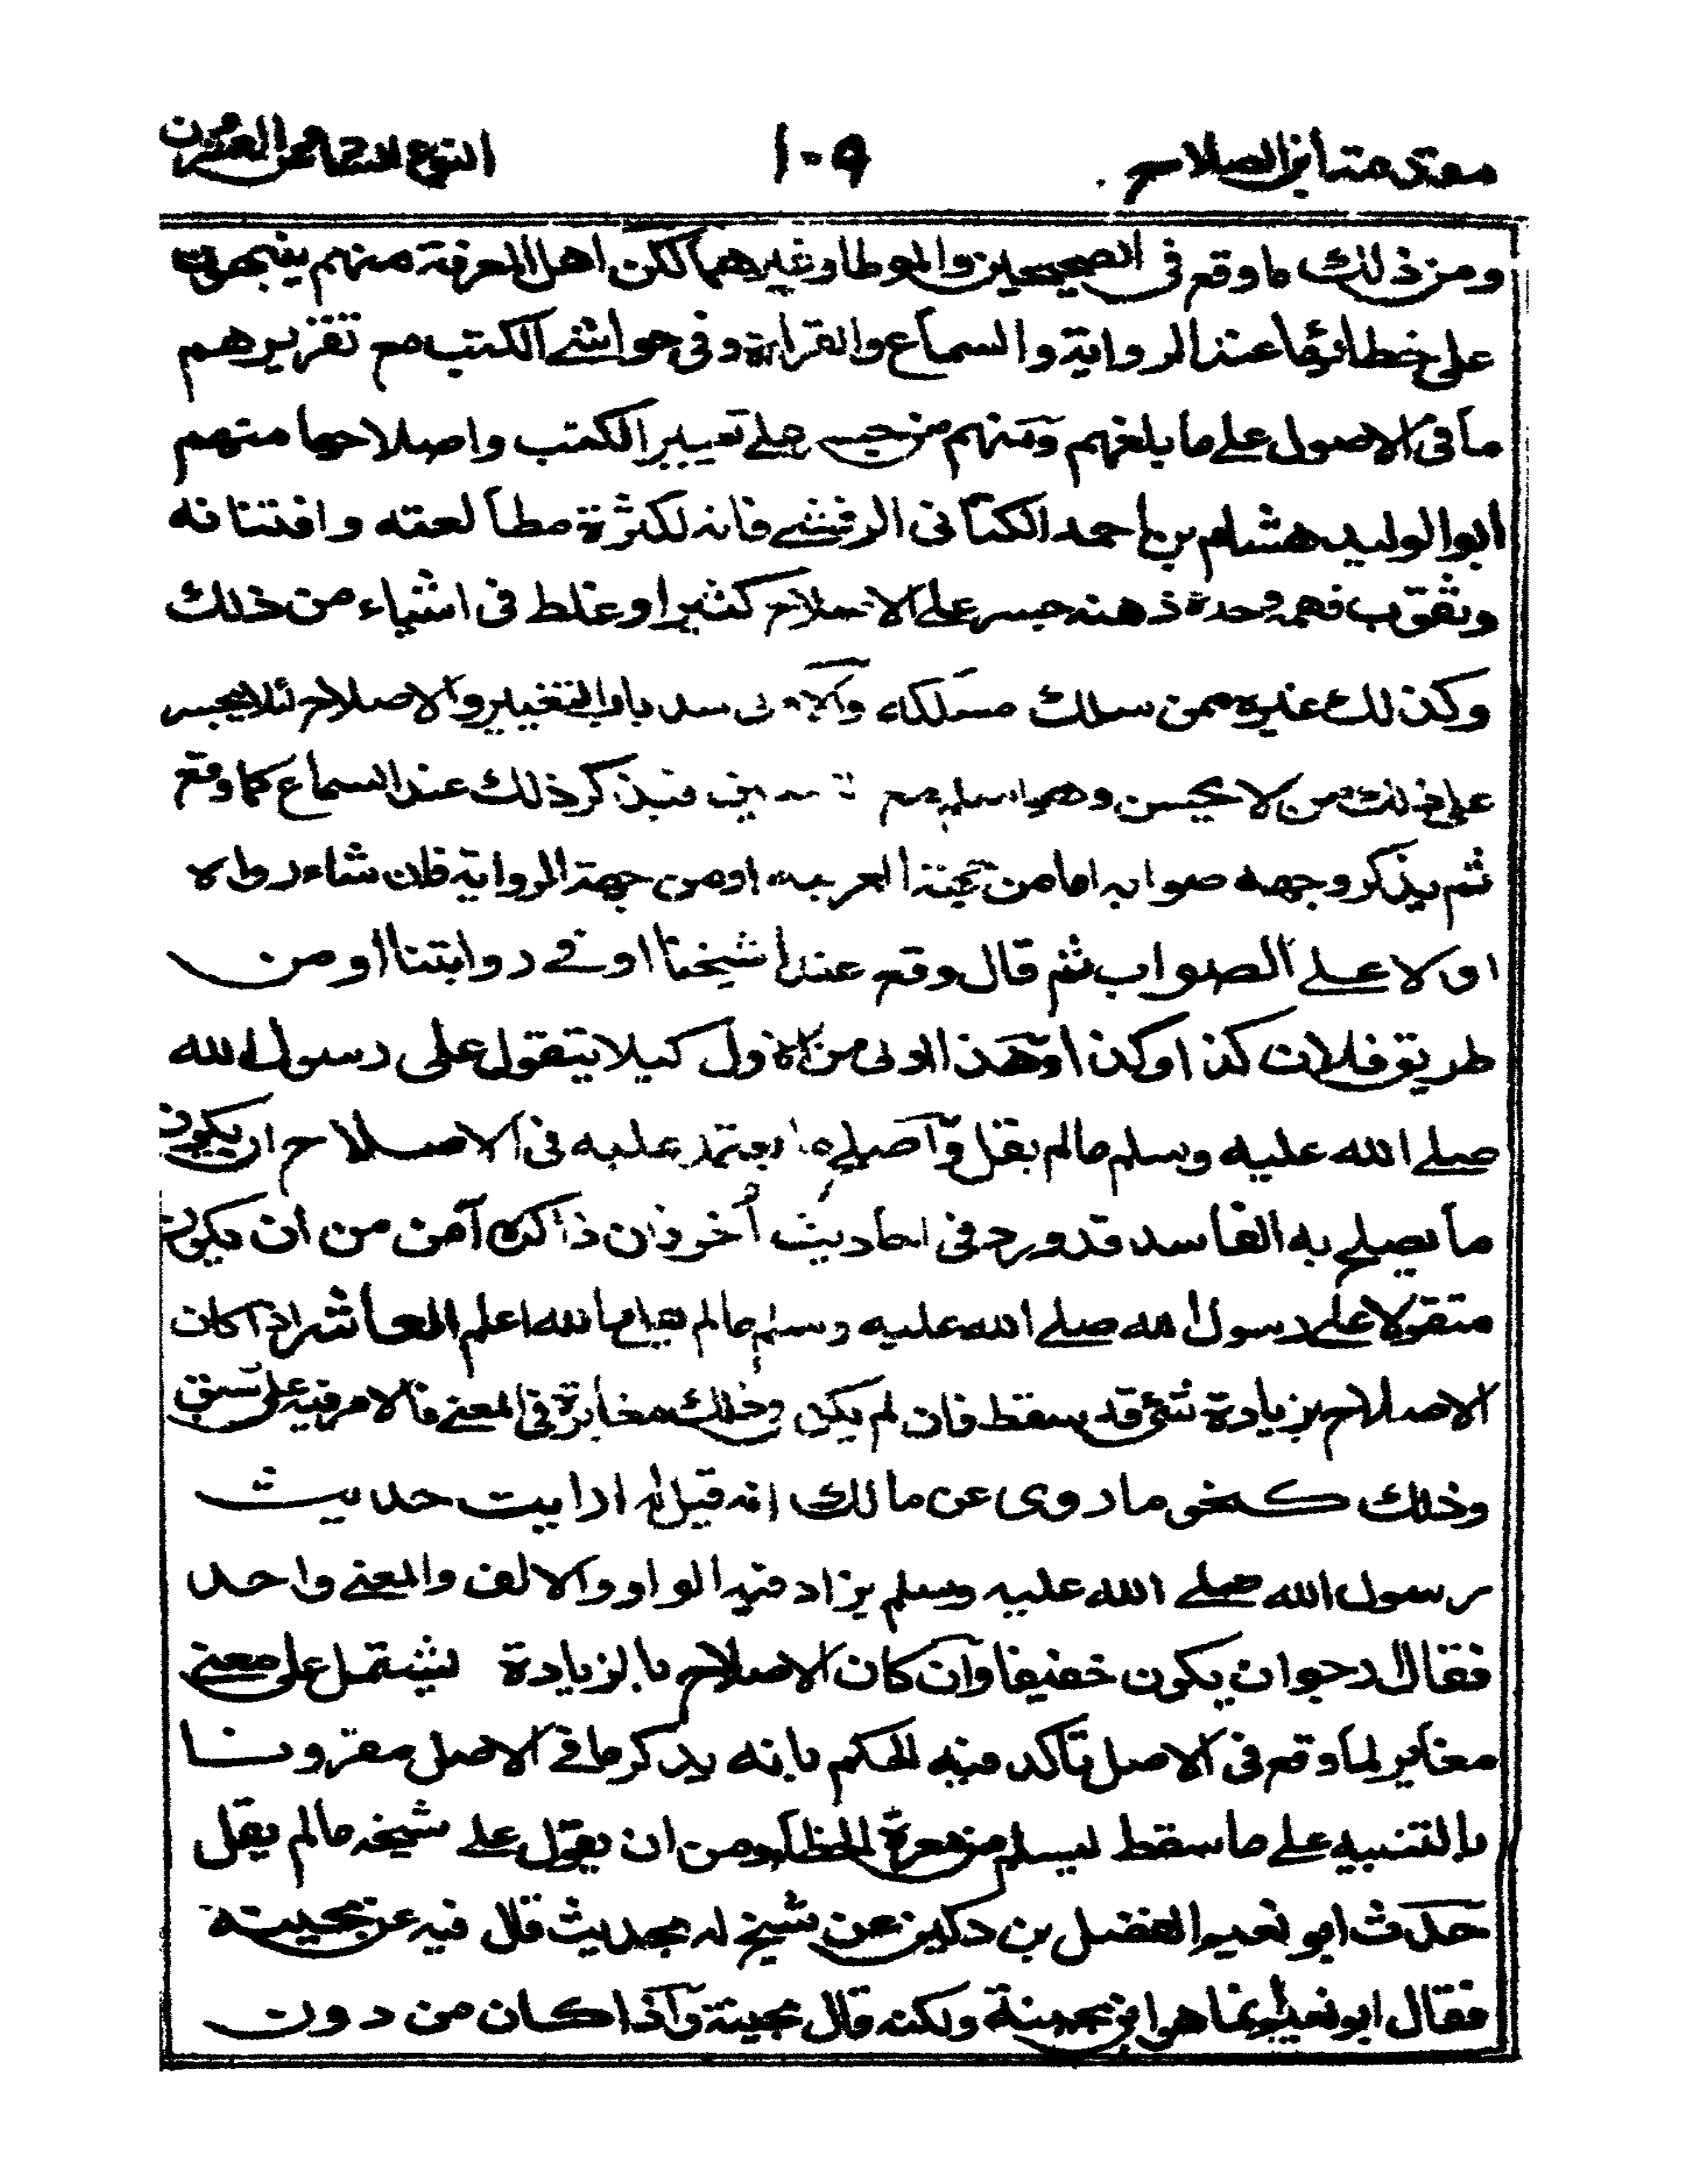 مقدمة ابن الصلاح ۱۰۹ النوع السادس والعشرون
ومن ذلك ما وقع فى الصحيحين والموطا وغيرهما لكن اهل المعرفة منهم ينبهون
على خطائها عند الرواية والسماع والقراءة وفى حواشى الكتب مع تقريرهم
ما فى الاصول على ما بلغهم ومنهم من جسر على تغيير الكتب واصلاحها منهم
ابو الوليد هشام بن احمد الكنانى الوقشى فانه لكثرة مطالعته وافتنانه
وثقوب فهمه وحدة ذهنه جسر على الاصلاح كثيرا وغلط فى اشياء من ذلك
وكذلك غيره ممن سلك مسلكه والاولى سد باب التغيير والاصلاح لئلا يجسر
على ذلك من لا يحسن وهو اسلم مع فيذكر ذلك عند السماع كما وقع
ثم يذكر وجه صوابه اما من جهة العربية او من جهة الرواية فان شاء رواه
اولا على الصواب ثم قال وقع عند شيخنا او فى روايتنا او من
طريق فلان كذا وكذا وهذا اولى من الاول كيلا يتقول على رسول الله
صلى الله عليه وسلم ما لم يقل واصلح ما يعتمد عليه فى الاصلاح ان يكون
ما يصلح به الفاسد قد ورد فى احاديث أخر فان ذاكره آمن من ان يكون
متقولا على رسول الله صلى الله عليه وسلم ما لم يقل والله اعلم العاشر اذا كان
الاصلاح بزيادة شئ قد سقط فان لم يكن وذلك مغايرة فى المعنى فالامر فيه على ما سبق
وذلك كنحو ما روى عن مالك انه قيل له ارايت حديث
رسول الله صلى الله عليه وسلم يزاد فيه الواو والالف والمعنى واحد
فقال ارجو ان يكون خفيفا وان كان الاصلاح بالزيادة يشتمل على معنى
مغاير لما وقع فى الاصل تأكد فيه الحكم بانه يذكر ما فى الاصل مقرونا
بالتنبيه على ما سقط ليسلم من معرة الخطأ ومن ان يقول على شيخه ما لم يقل
حدث ابو نعيم الفضل بن دكين عن شيخ له بحديث قال فيه عن بحينة
فقال ابو نعيم انما هو ابن بحينة ولكنه قال بحينة واذا كان من دون